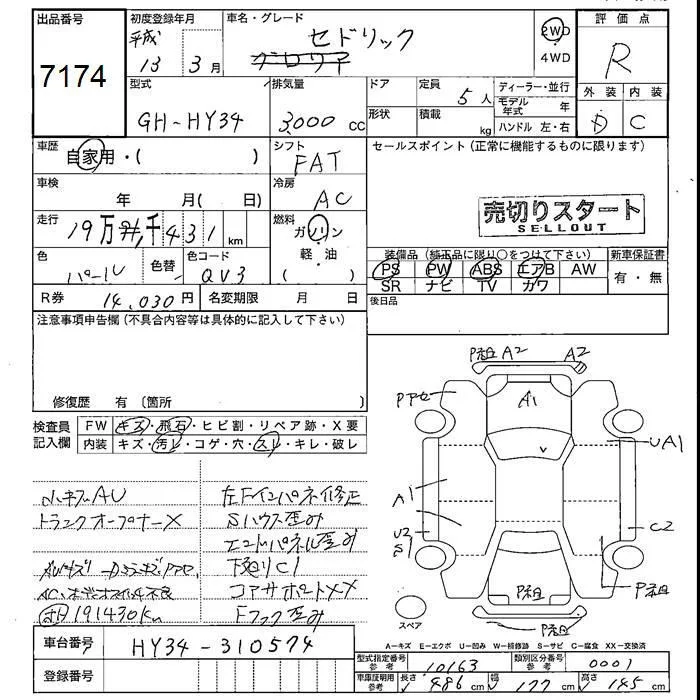 出品番号 初度登録年月 車名・グレード 2WD 評価点
7174 平成 セドリック 4WD R
13 3月 グロリア
型式 排気量 ドア 定員 ディーラー・並行 外装 内装
GH-HY34 3,000 cc 形状 5人 モデル年式 年 D C
積載 kg ハンドル 左・右
車歴 自家用・( ) シフト FAT セールスポイント (正常に機能するものに限ります)
車検 年 月( 日) 冷房 AC
売切りスタート
SELLOUT
走行 19万 千431 km 燃料 ガソリン
軽・油
( )
色 パール 色替 色コード QV3
装備品 (純正品に限り○をつけて下さい) 新車保証書
PS PW ABS エアB AW 有・無
SR ナビ TV カワ
R券 14,030円 名変期限 月 日 後日品
注意事項申告欄 (不具合内容等は具体的に記入して下さい)
修復歴 有 (箇所 )
P祖 A2 A2
A1
検査員 FW キズ・飛石・ヒビ割・リペア跡・X要
記入欄 内装 キズ・汚レ・コゲ・穴・スレ・キレ・破レ
UA1
小キズAU 左Fインパネ修正
A1
トランクオープナーX Sハウス歪み
U2 C2
S1
エンドパネル歪み
下廻りC1
コアサポートXX P祖
191430km Fフック歪み
P祖
P祖
スペア
車台番号 HY34-310574
A-キズ E-エクボ U-凹み W-補修跡 S-サビ C-腐食 XX-交換済
登録番号
型式指定番号 参考 10163 類別区分番号 参考 0001
車庫証明用 参考 長さ 486 cm 幅 177 cm 高さ 145 cm